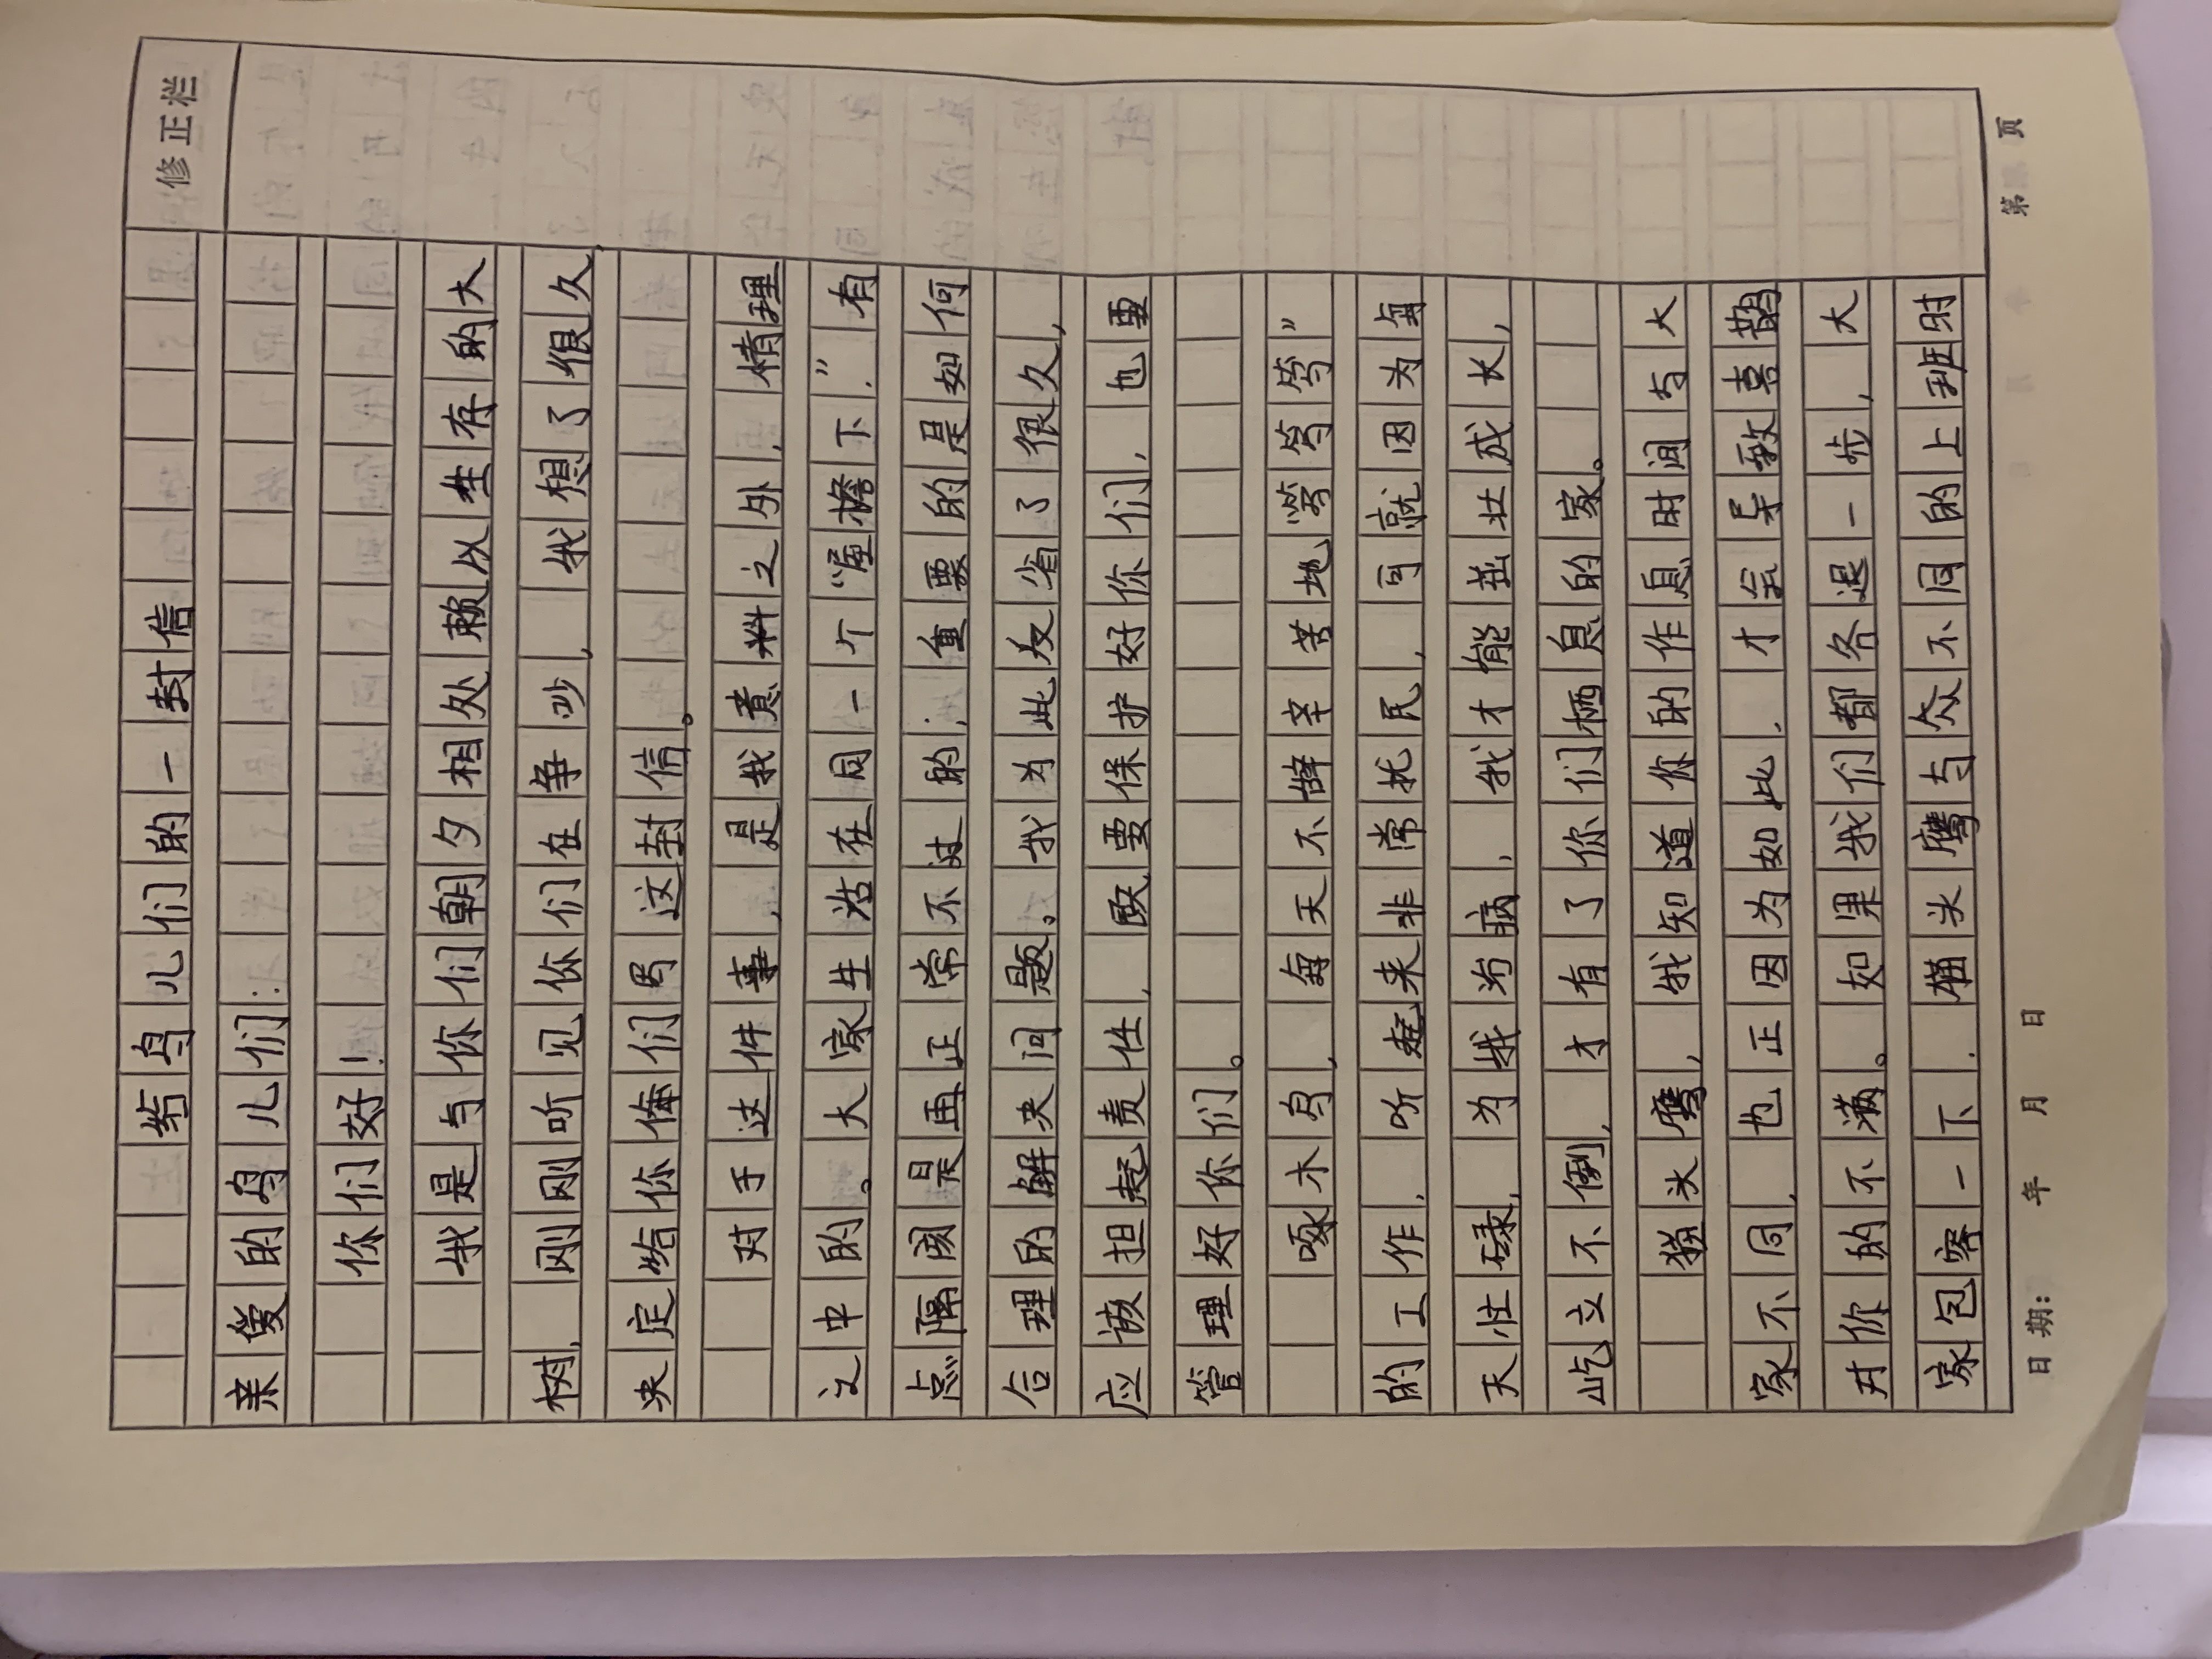 修正栏
给鸟儿们的一封信
亲爱的鸟儿们：
你们好！
我是与你们朝夕相处赖以生存的大
树，刚刚听见你们在争吵，我想了很久，
决定给你们写这封信。
对于这件事，是我意料之外，情理
之中的。大家生活在同一个“屋檐下”，有
点隔阂是再正常不过的；重要的是如何
合理的解决问题。我为此反省了很久，
应该担起责任，既要保护好你们，也要
管理好你们。
啄木鸟，每天不辞辛苦地“笃笃笃”
的工作，听起来非常扰民，可就因为每
天忙碌，为我治病，我才能茁壮成长，
屹立不倒，才有了你们栖息的家。
猫头鹰，我知道你的作息时间与大
家不同，也正因为如此，才会导致喜鹊
对你的不满。如果我们都各退一步，大
家包容一下，猫头鹰与众不同的上班时
日期： 年 月 日
第 页